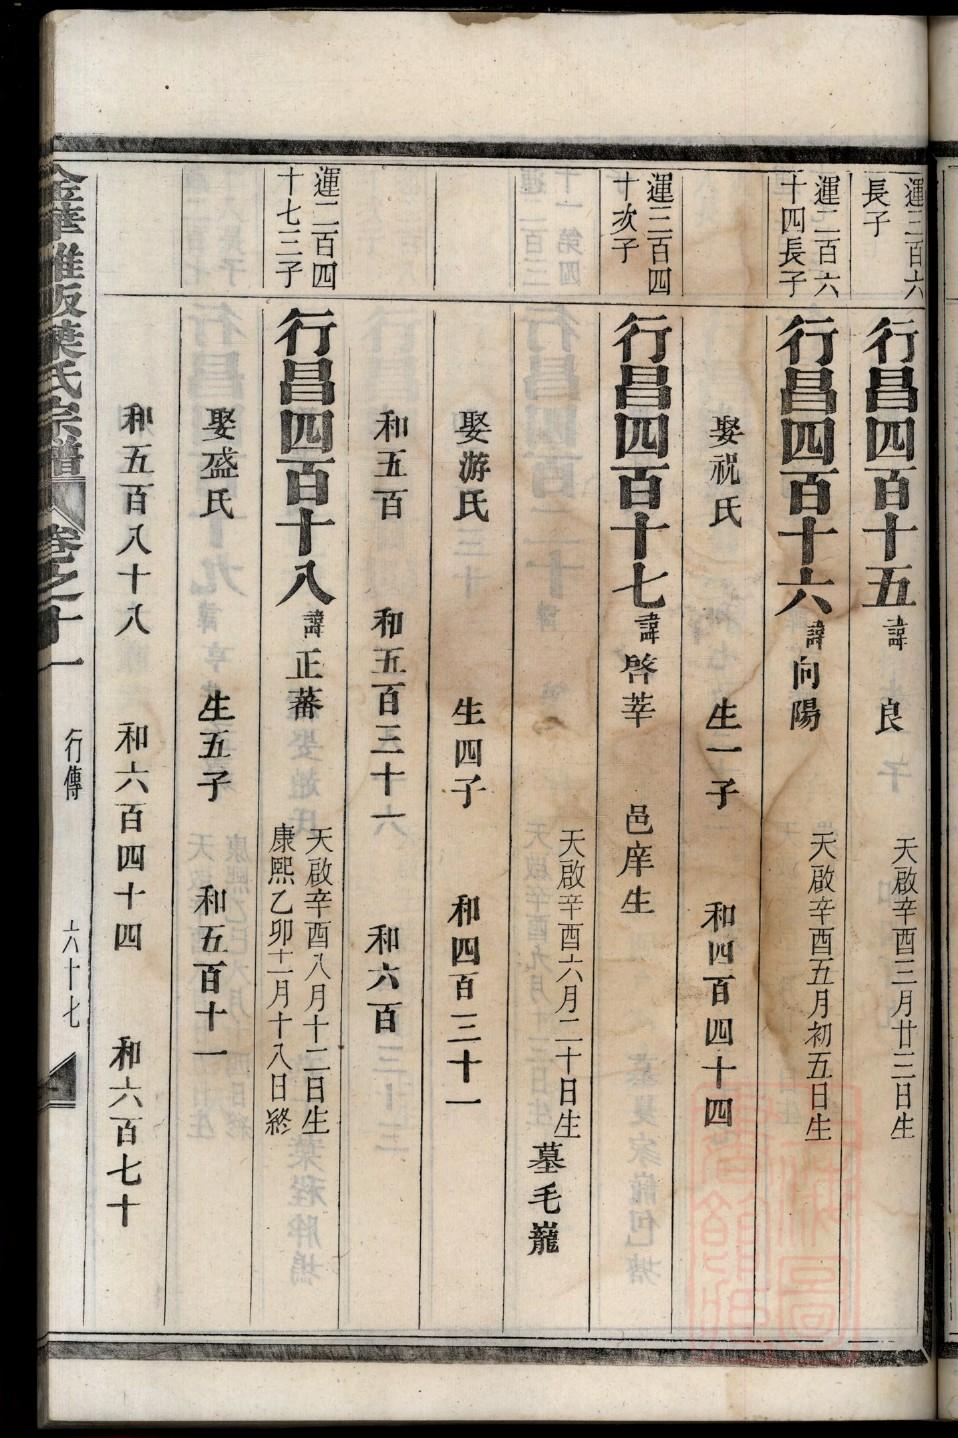 運三百六
長子
行昌四百十五 諱 良 天啟辛酉三月廿二日生
運二百六
十四長子
行昌四百十六 諱 向陽 天啟辛酉五月初五日生
娶祝氏 生一子 和四百四十四
運三百四
十次子
行昌四百十七 諱 啓莘 邑庠生
天啟辛酉六月二十日生 墓毛巃
娶游氏 生四子 和四百三十一
和五百 和五百三十六 和六百
運二百四
十七三子
行昌四百十八 諱 正蕃 天啟辛酉八月十二日生
康熙乙卯十一月十八日終
娶盛氏 生五子 和五百十一
和五百八十八 和六百四十四 和六百七十
金華雅畈葉氏宗譜 卷之十一 行傳 六十七